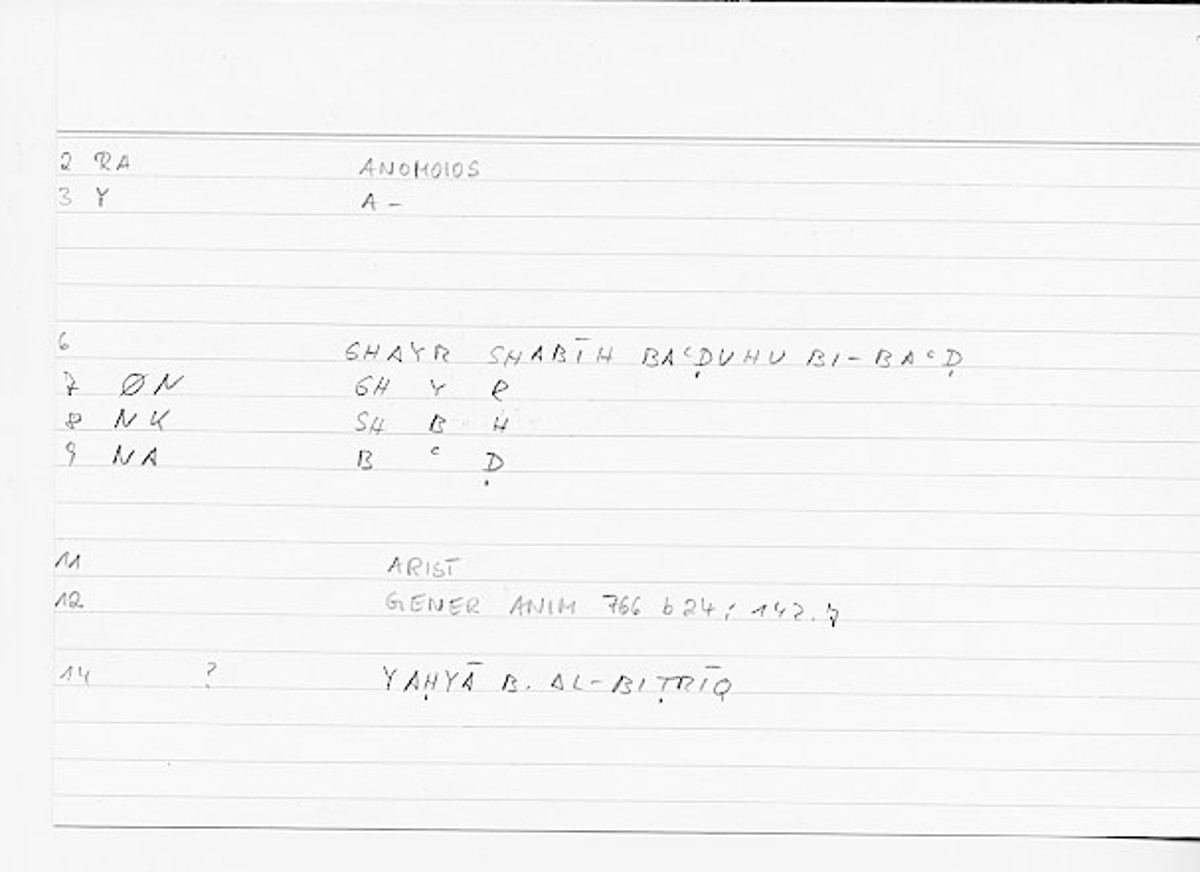 2 RA ANOMOIOS
3 Y A -
6 GHAYR SHABĪH BAʿḌUHU BI-BAʿḌ
7 ØN GH Y R
8 NK SH B H
9 NA B ʿ Ḍ
11 ARIST
12 GENER ANIM 766 b 24; 142.7
14 ? YAḤYĀ B. AL-BIṬRĪQ